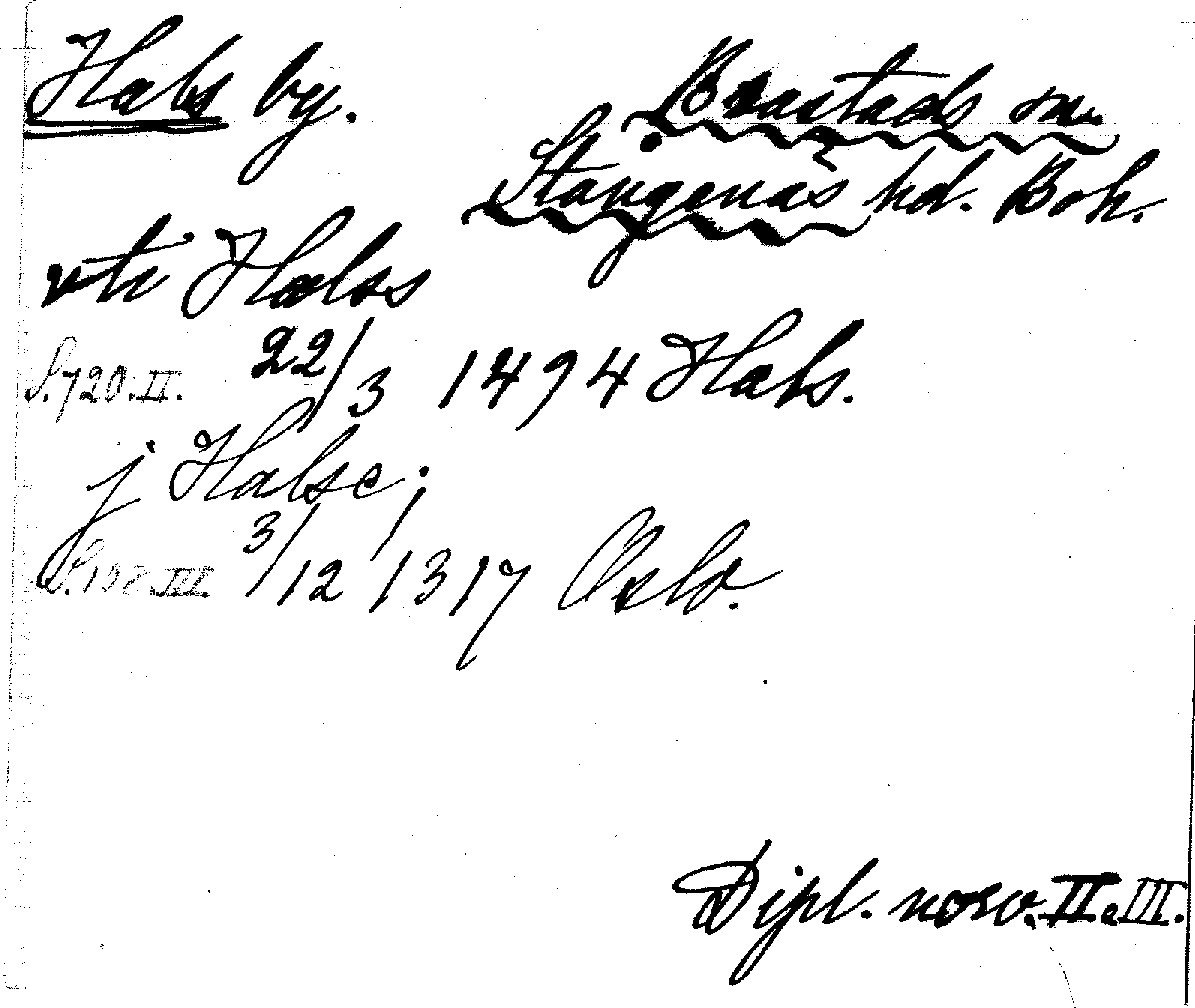 Hals by.
Brastads sn.
Stångenäs hd. Boh.
vti Halss
S. 720. II. 22/3 1494 Hals.
j Halse;
3/12 1317 Oslo.
Dipl. norv. II. III.